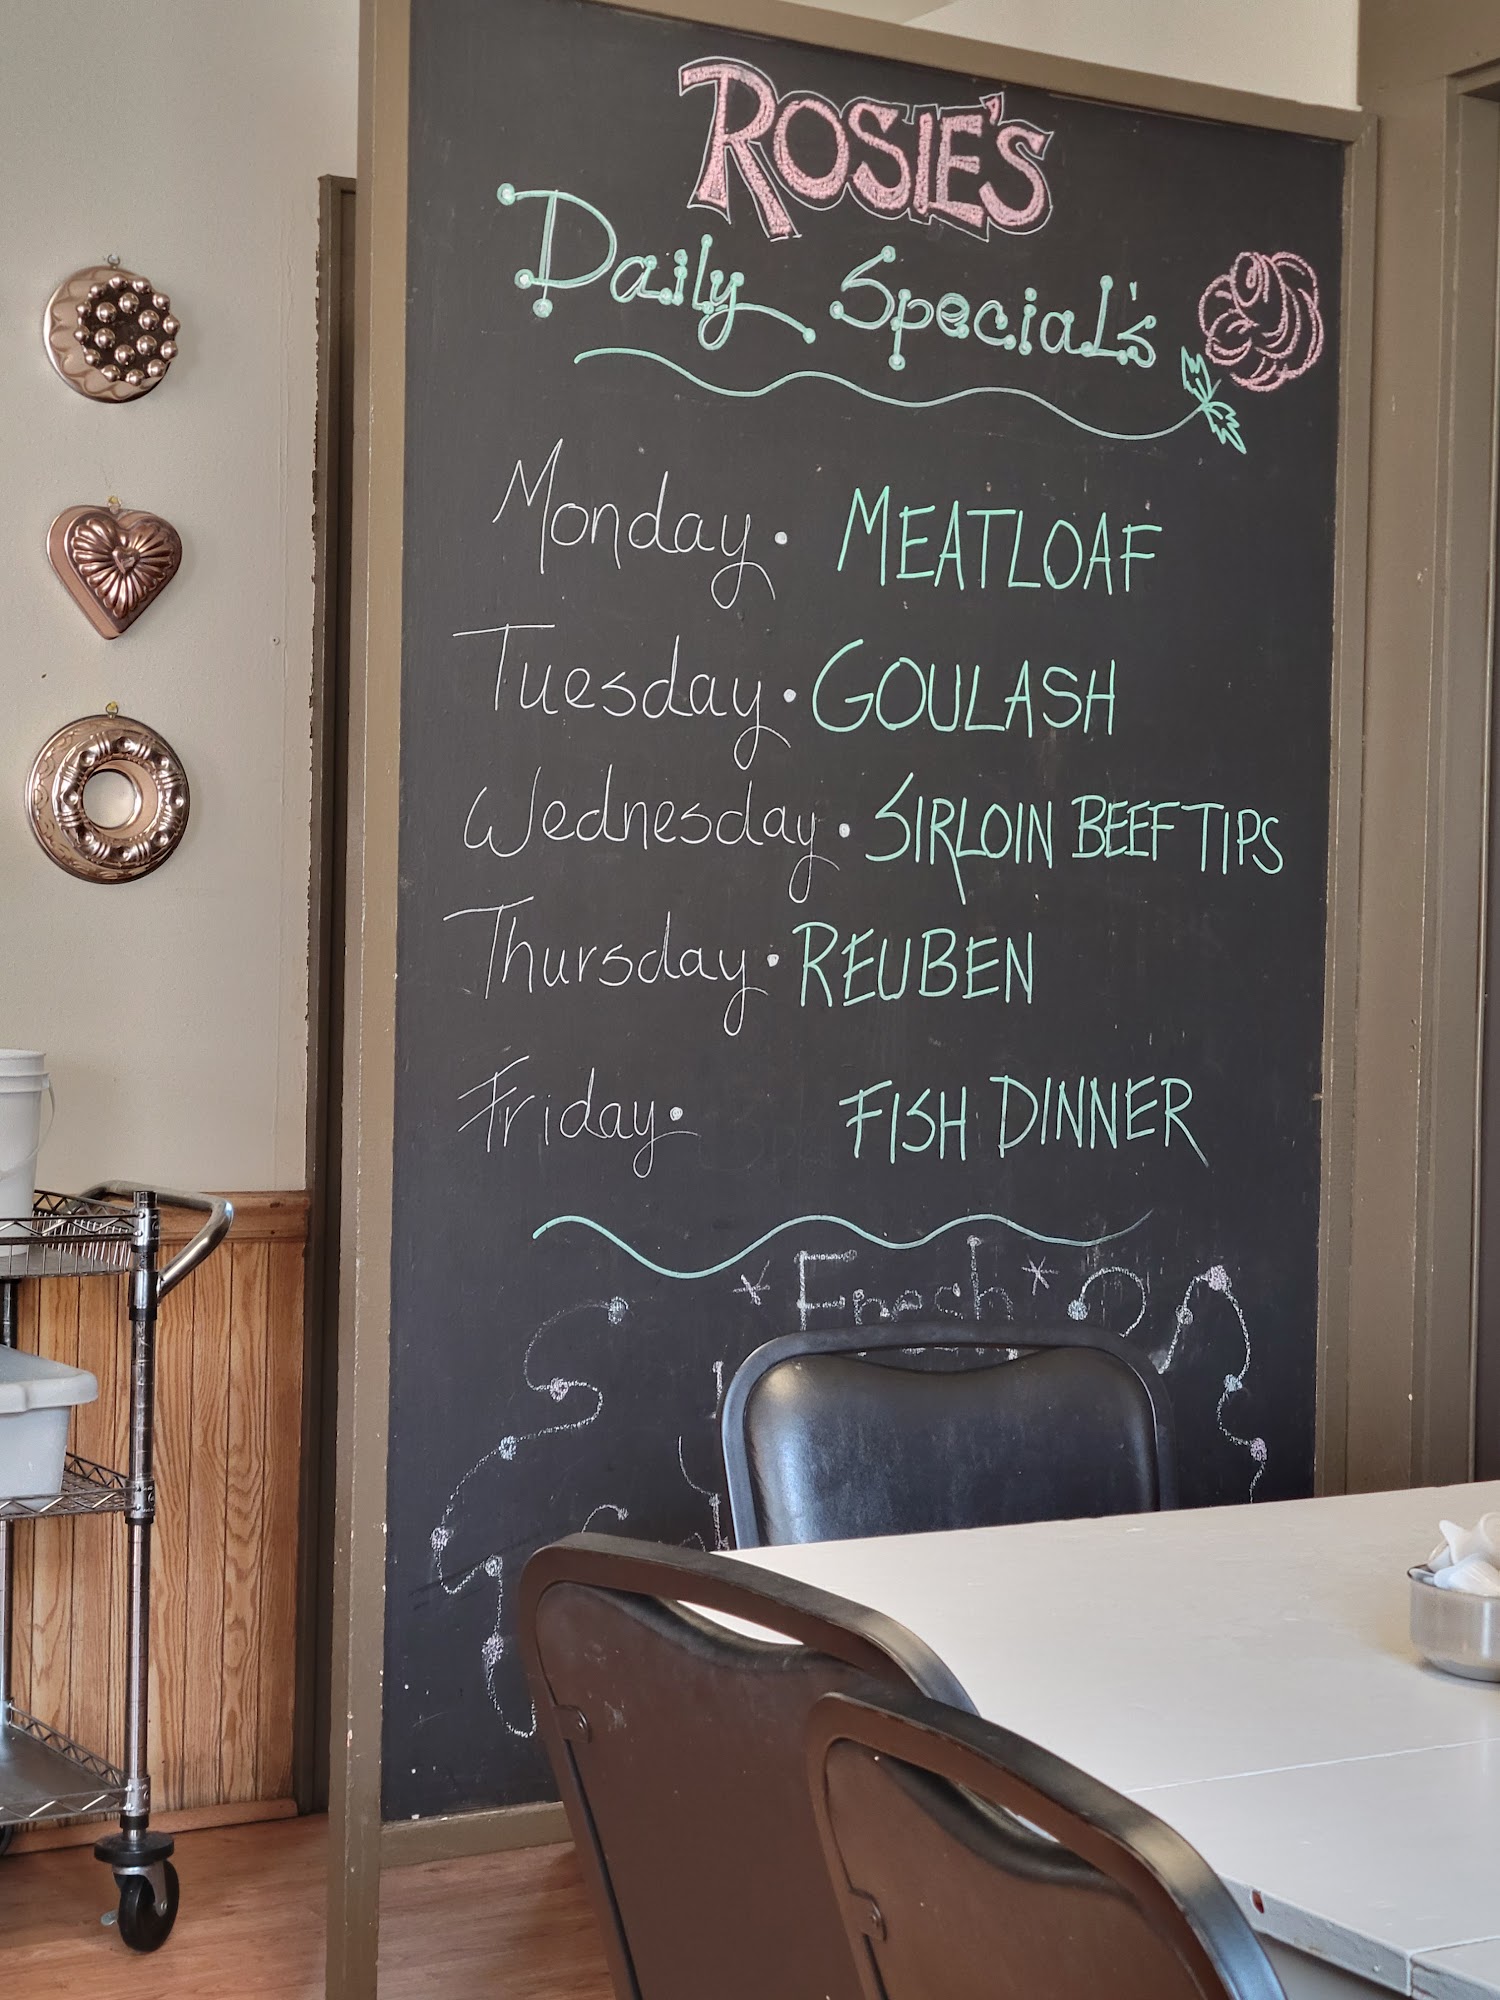 ROSIE'S
Daily Special's
Monday · MEATLOAF
Tuesday · GOULASH
Wednesday · SIRLOIN BEEF TIPS
Thursday · REUBEN
Friday · FISH DINNER
* Fresh *